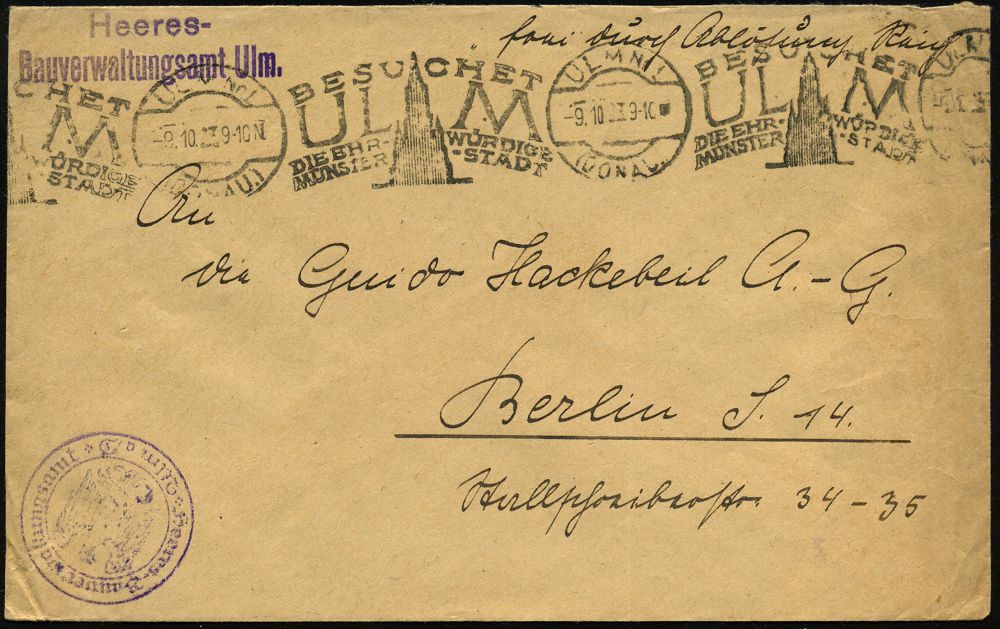 Heeres-
Bauverwaltungsamt Ulm.
frei durch Ablösung Reich
CHET
M
WÜRDIGE
STADT
ULM (DONAU.)
-9.10.33.9-10 N
BESUCHET
ULM
DIE EHR-WÜRDIGE
MÜNSTER-STADT
ULM (DONAU.)
-9.10.33.9-10
BESUCHET
ULM
DIE EHR-WÜRDIGE
MÜNSTER-STADT
An
die Guido Hackebeil A.-G.
Berlin S. 14.
Stallschreiberstr. 34-35
Heeres-Bauverwaltungsamt